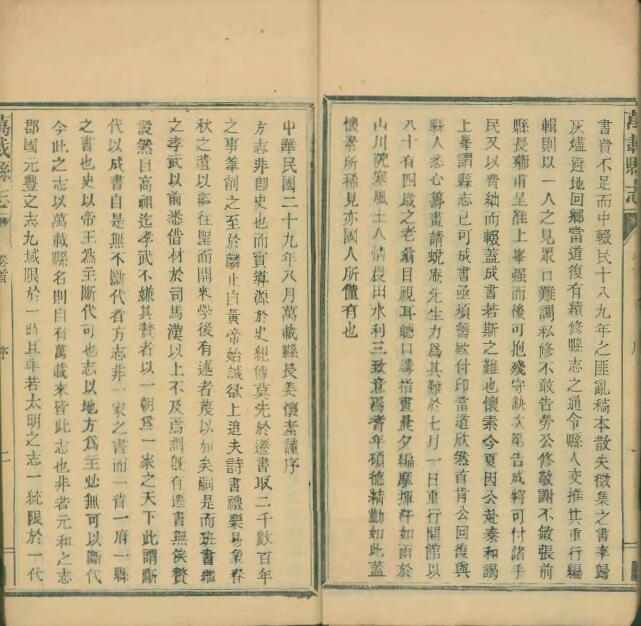 萬載縣志
書費不足而中輟民十八九年之匪亂稿本散失徵集之書率歸
灰燼避地回鄉當道復有續修縣志之通令縣人交推其重行編
輯則以一人之見眾口難調私修不敢告勞公修敬謝不敏張前
縣長蕣甫呈准上峯强而後可抱殘守缺次第告成將可付諸手
民又以費絀而輟蓋成書若斯之難也懷素今夏因公赴泰和謁
上峯謂縣志已可成書亟須籌欵付印當道欣然首肯公回復與
縣人悉心籌畫請蛻庵先生力為其難於七月一日重行開館以
八十有四歲之老翁目視耳聽口講指畫晨夕編摩揮汗如雨於
山川阨塞風土人情農田水利三致意焉耆年碩德精勤如此蓋
懷素所稀見亦國人所僅有也
中華民國二十九年八月萬載縣長姜懷素謹序
方志非卽史也而實導源於史紀傳莫先於遷書取二千數百年
之事筆削之至於麟止自黃帝始誠欲上追夫詩書禮樂易象春
秋之遺以繼往聖而開來學後有述者蔑以加矣嗣是而班書繼
之孝武以前悉借材於司馬漢以上不及焉謂旣有遷書無俟贅
說然自高祖迄孝武不嫌其贅者以一朝為一家之天下此謂斷
代以成書自是無不斷代者方志非一家之書而一省一府一縣
之書也史以帝王為主斷代可也志以地方為主必無可以斷代
今此之志以萬載縣名則自有萬載來皆此志也非若元和之志
郡國元豐之志九域限於一時且非若太明之志一統限於一代
萬載縣志
卷首
序
二